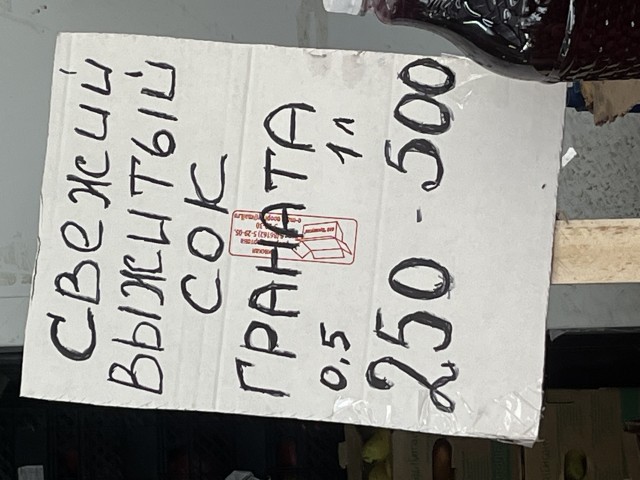 СВЕЖИЙ
ВЫЖИТЫЙ
СОК
ГРАНАТА
0,5 1л
250 - 500